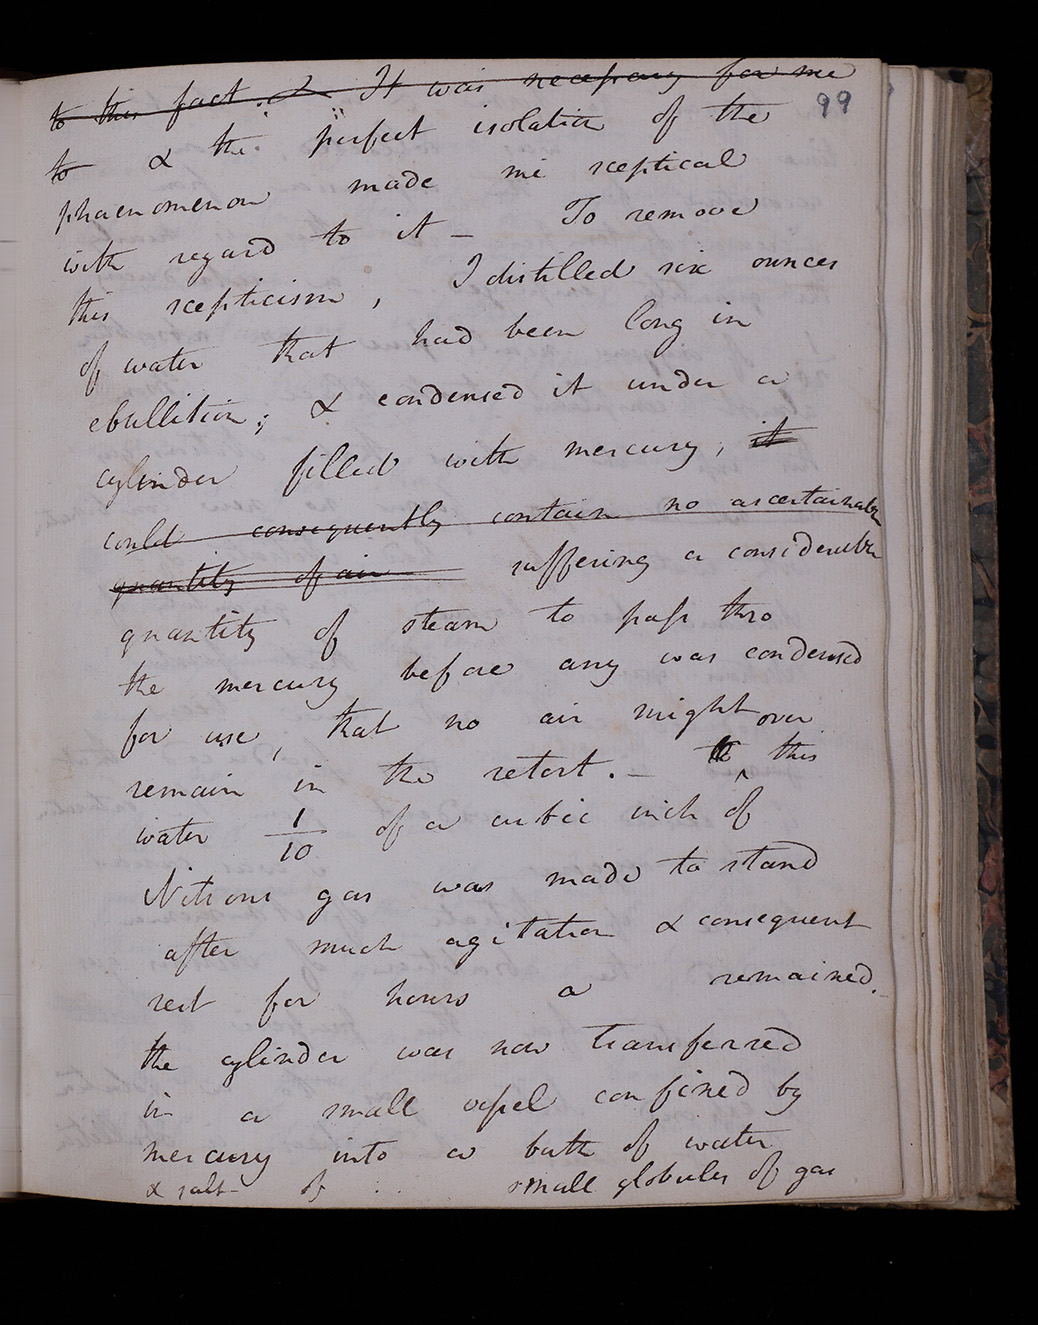 to this fact. & It was necessary for me
99
to & the perfect isolation of the
phaenomenon made me sceptical
with regard to it – To remove
this scepticism, I distilled six ounces
of water that had been long in
ebullition; & condensed it under a
cylinder filled with mercury; it
could consequently contain no ascertainable
quantity of air suffering a considerable
quantity of steam to pass thro
the mercury before any was condensed
for use, that no air might over
remain in the retort. – this
water 1/10 of a cubic inch of
Nitrous gas was made to stand
after much agitation & consequent
rest for hours a remained.
the cylinder was now transferred
in a small vessel confined by
mercury into a bath of water
& salt of .. small globules of gas